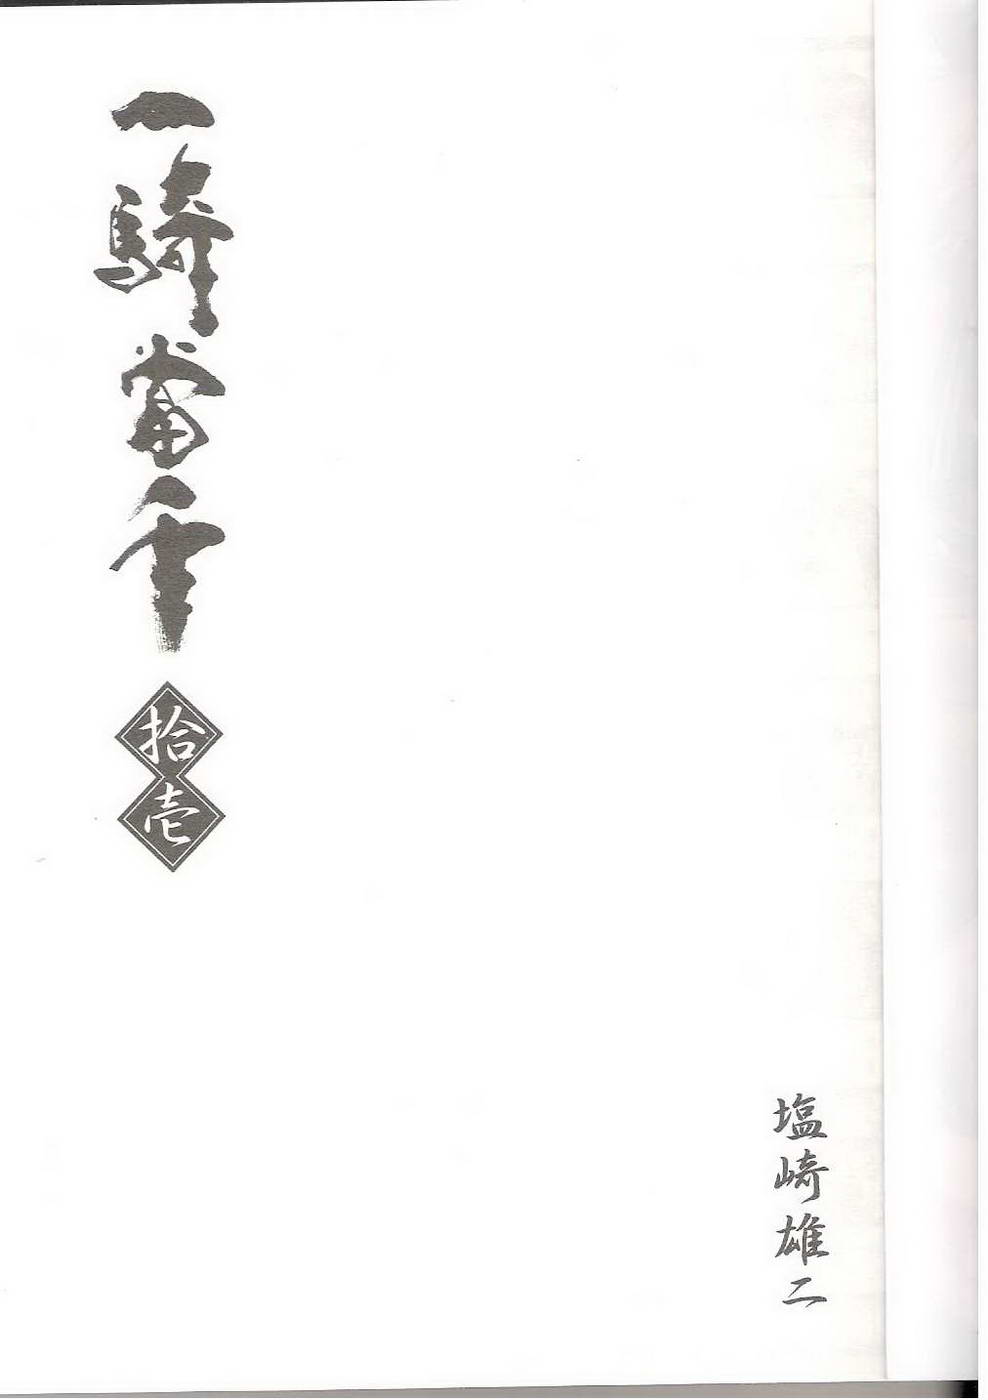 一騎當千
拾壱
塩崎雄二